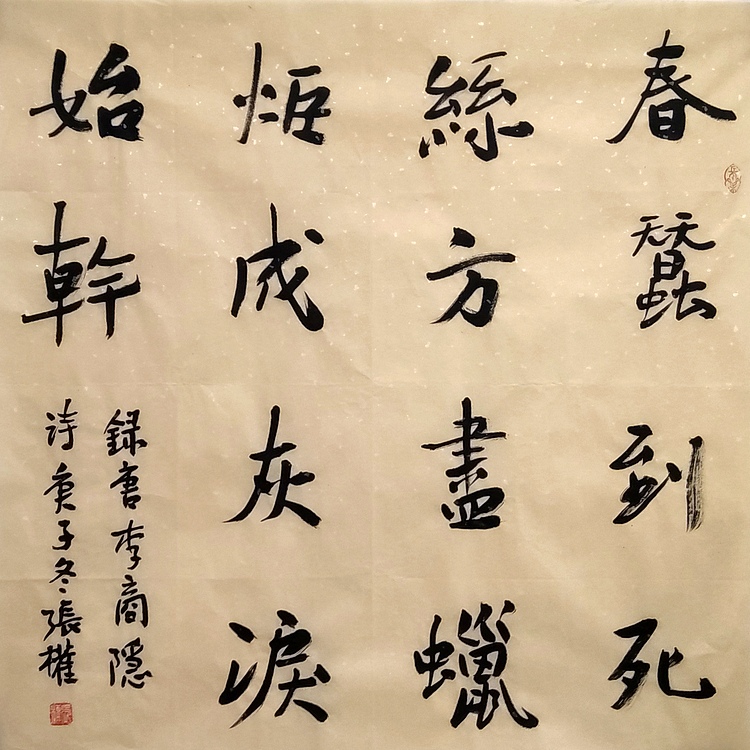 春蠶到死
絲方盡蠟
炬成灰淚
始幹
録唐李商隱
詩庚子冬張權